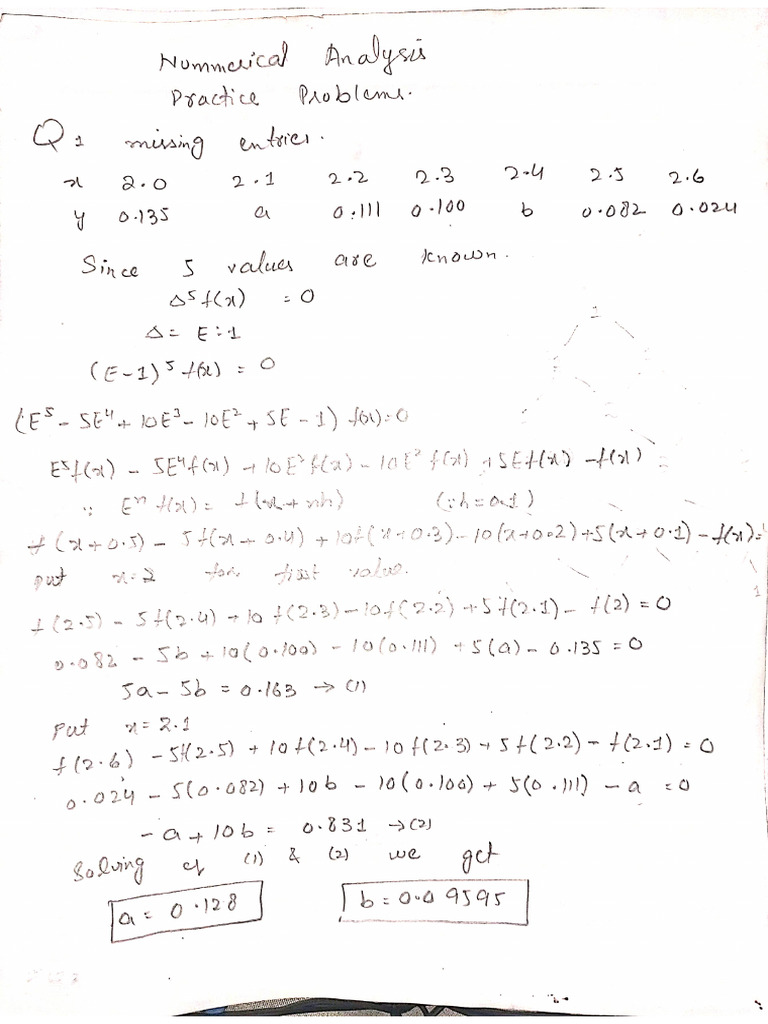 Nummerical Analysis
Practice Problems.
Q1 missing entries.
x 2.0 2.1 2.2 2.3 2.4 2.5 2.6
y 0.135 a 0.111 0.100 b 0.082 0.024
Since 5 values are known.
Δ⁵f(x) = 0
Δ = E-1
(E-1)⁵ f(x) = 0
(E⁵ - 5E⁴ + 10E³ - 10E² + 5E - 1) f(x) = 0
E⁵f(x) - 5E⁴f(x) + 10E³f(x) - 10E² f(x) + 5Ef(x) - f(x)
∵ Eⁿ f(x) = f(x + nh) (∵ h = 0.1)
f(x+0.5) - 5f(x+0.4) + 10f(x+0.3) - 10(x+0.2) + 5(x+0.1) - f(x) =
put x=2 for first value.
f(2.5) - 5f(2.4) + 10f(2.3) - 10f(2.2) + 5f(2.1) - f(2) = 0
0.082 - 5b + 10(0.100) - 10(0.111) + 5(a) - 0.135 = 0
5a - 5b = 0.163 → (1)
Put x = 2.1
f(2.6) - 5f(2.5) + 10f(2.4) - 10f(2.3) + 5f(2.2) - f(2.1) = 0
0.024 - 5(0.082) + 10b - 10(0.100) + 5(0.111) - a = 0
-a + 10b = 0.831 → (2)
Solving eq (1) & (2) we get
a = 0.128 b = 0.09595